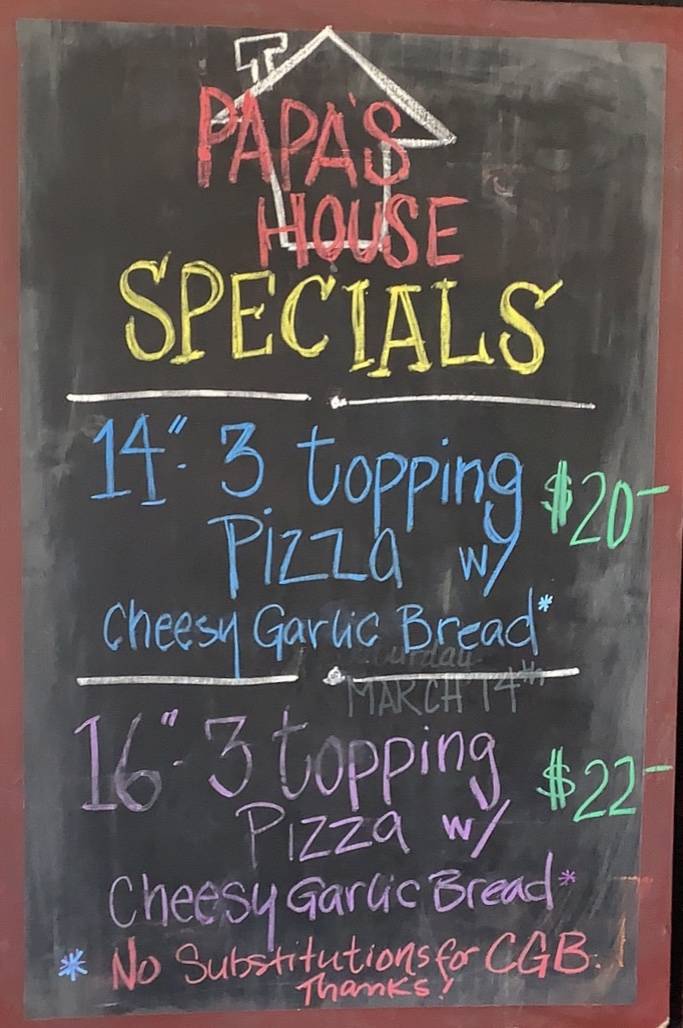 PAPA'S
HOUSE
SPECIALS
14" - 3 topping $20-
Pizza w/
Cheesy Garlic Bread*
MARCH 14th
16" - 3 topping $22-
Pizza w/
Cheesy Garlic Bread*
* No Substitutions for CGB.
Thanks!